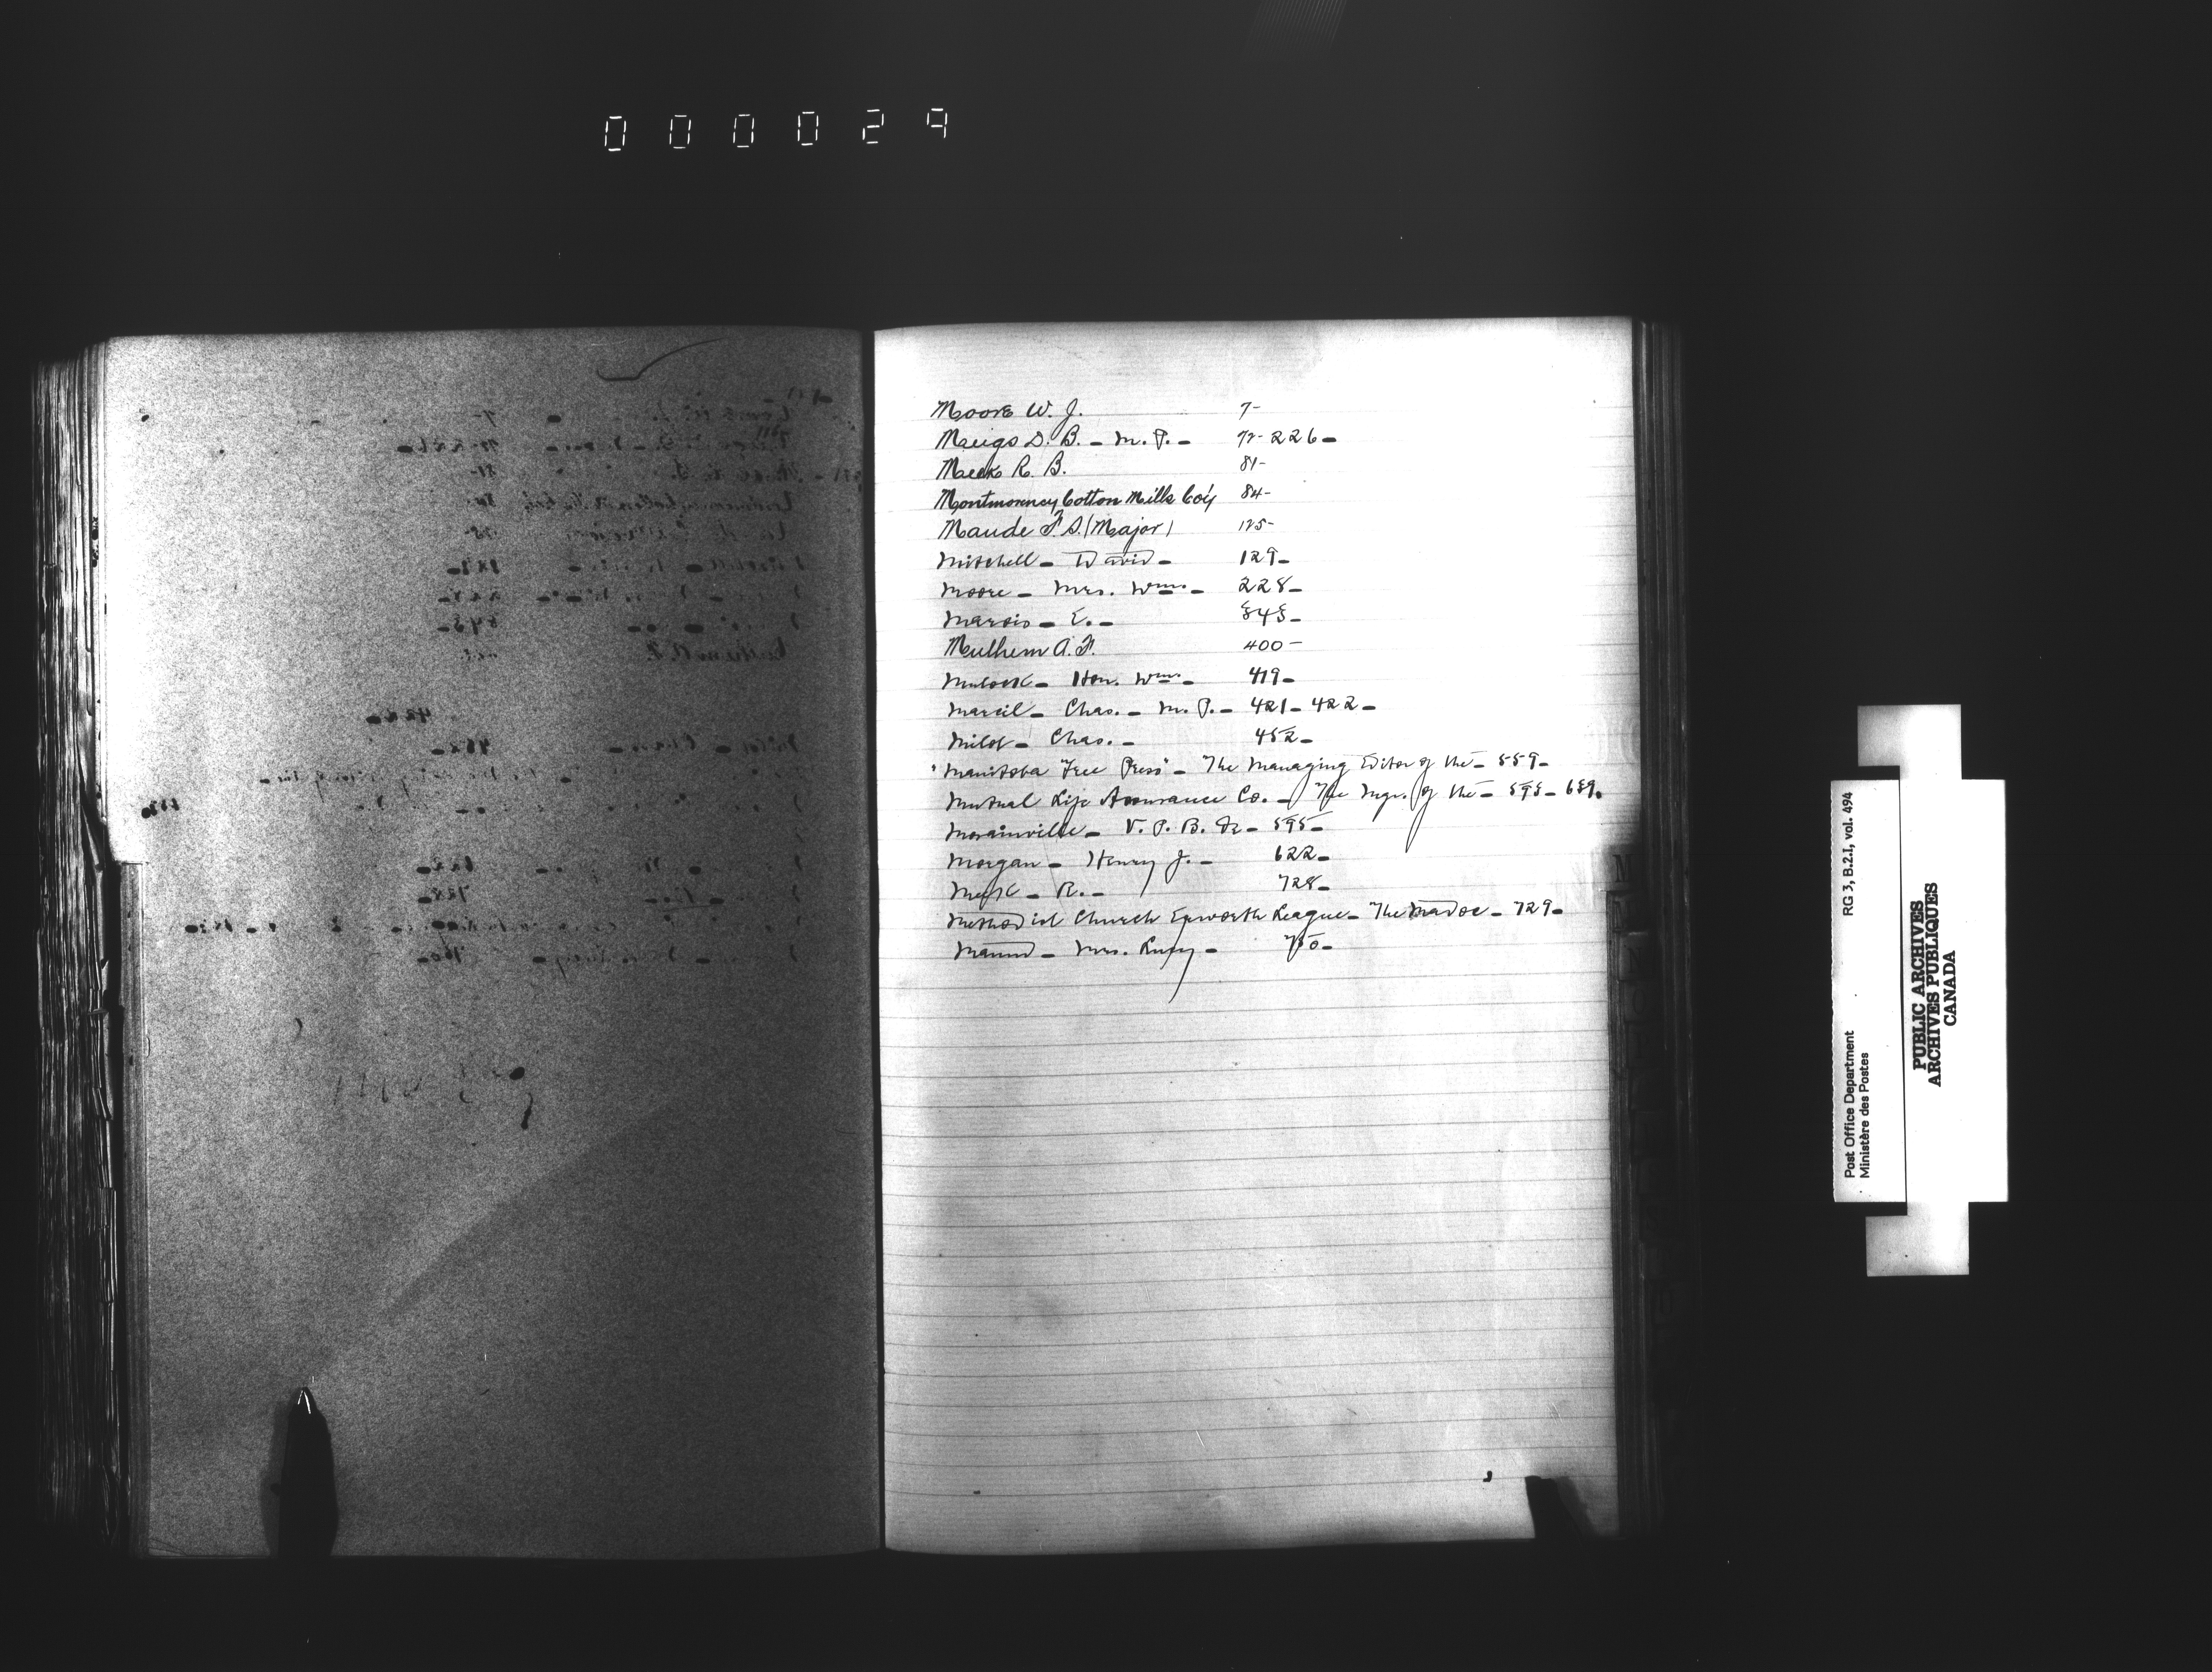 000029
Moore W. J. 7-
Meigs D. B. - M. P. - 72-226-
Meek R. B. 81-
Montmorency Cotton Mills Co'y 84-
Maude F. S. (Major) 125-
Mitchell - David - 129-
Moore - Mrs. Wm. - 228-
Marois - E. - 343-
Mulhern A. F. 400-
Mulock - Hon. Wm. - 419-
Marcil - Chas. - M. P. - 421-422-
Milot - Chas. - 452-
"Manitoba Free Press" - The Managing Editor of the - 559-
Mutual Life Assurance Co. - The Mgr. of the - 593-659.
Morainville - V. P. B. - 595-
Morgan - Henry J. - 622-
R. - 728-
Methodist Church Epworth League - The Madoc - 729-
Mrs. Lucy - 750-
M
Post Office Department
Ministère des Postes
RG 3, B.2.I, vol. 494
PUBLIC ARCHIVES
ARCHIVES PUBLIQUES
CANADA